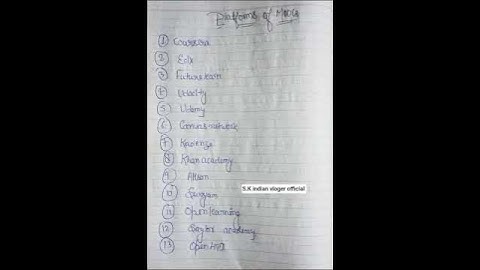 Platforms of MOOCs
① Coursera
② Edx
③ Futurelearn
④ Udacity
⑤ Udemy
⑥ Canvas network
⑦ Kadenze
⑧ Khan academy
⑨ Alison
⑩
S.K indian vloger official
⑪ Open learning
⑫ Saylor academy
⑬